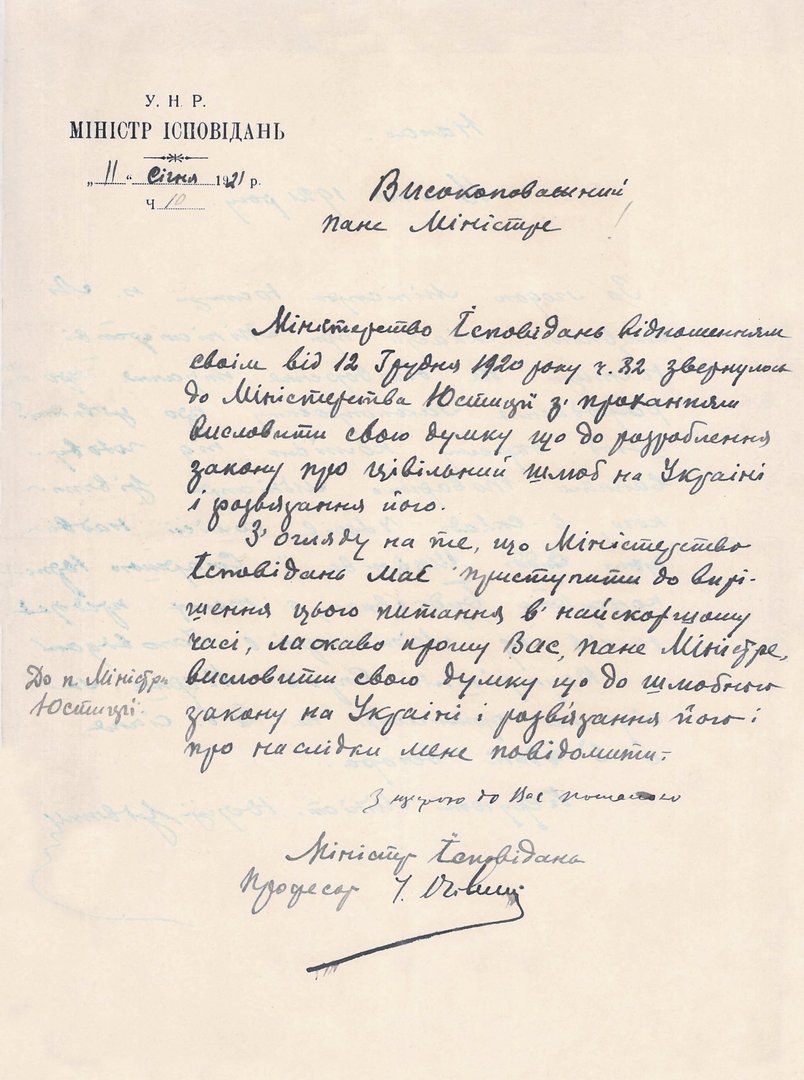 У. Н. Р.
МІНІСТР ІСПОВІДАНЬ
„ 11 " Січня 1921 р.
Ч 10
Високоповажний
пане Міністре!
Міністерство Ісповідань відношенням
своїм від 12 Грудня 1920 року ч. 32 звернулось
до Міністерства Юстиції з' проханням
висловити свою думку що до розроблення
закону про цівільний шлюб на Україні
і розвязання його.
З' огляду на те, що Міністерство
Ісповідань має приступити до вирі-
шення цього питання в' найскоршому
часі, ласкаво прошу Вас, пане Міністре,
висловити свою думку що до шлюбного
закону на Україні і розв'язання його і
про наслідки мене повідомити.
До п. Міністра
Юстиції.
З щирою до Вас пошаною
Міністр Ісповідань
Професор І.